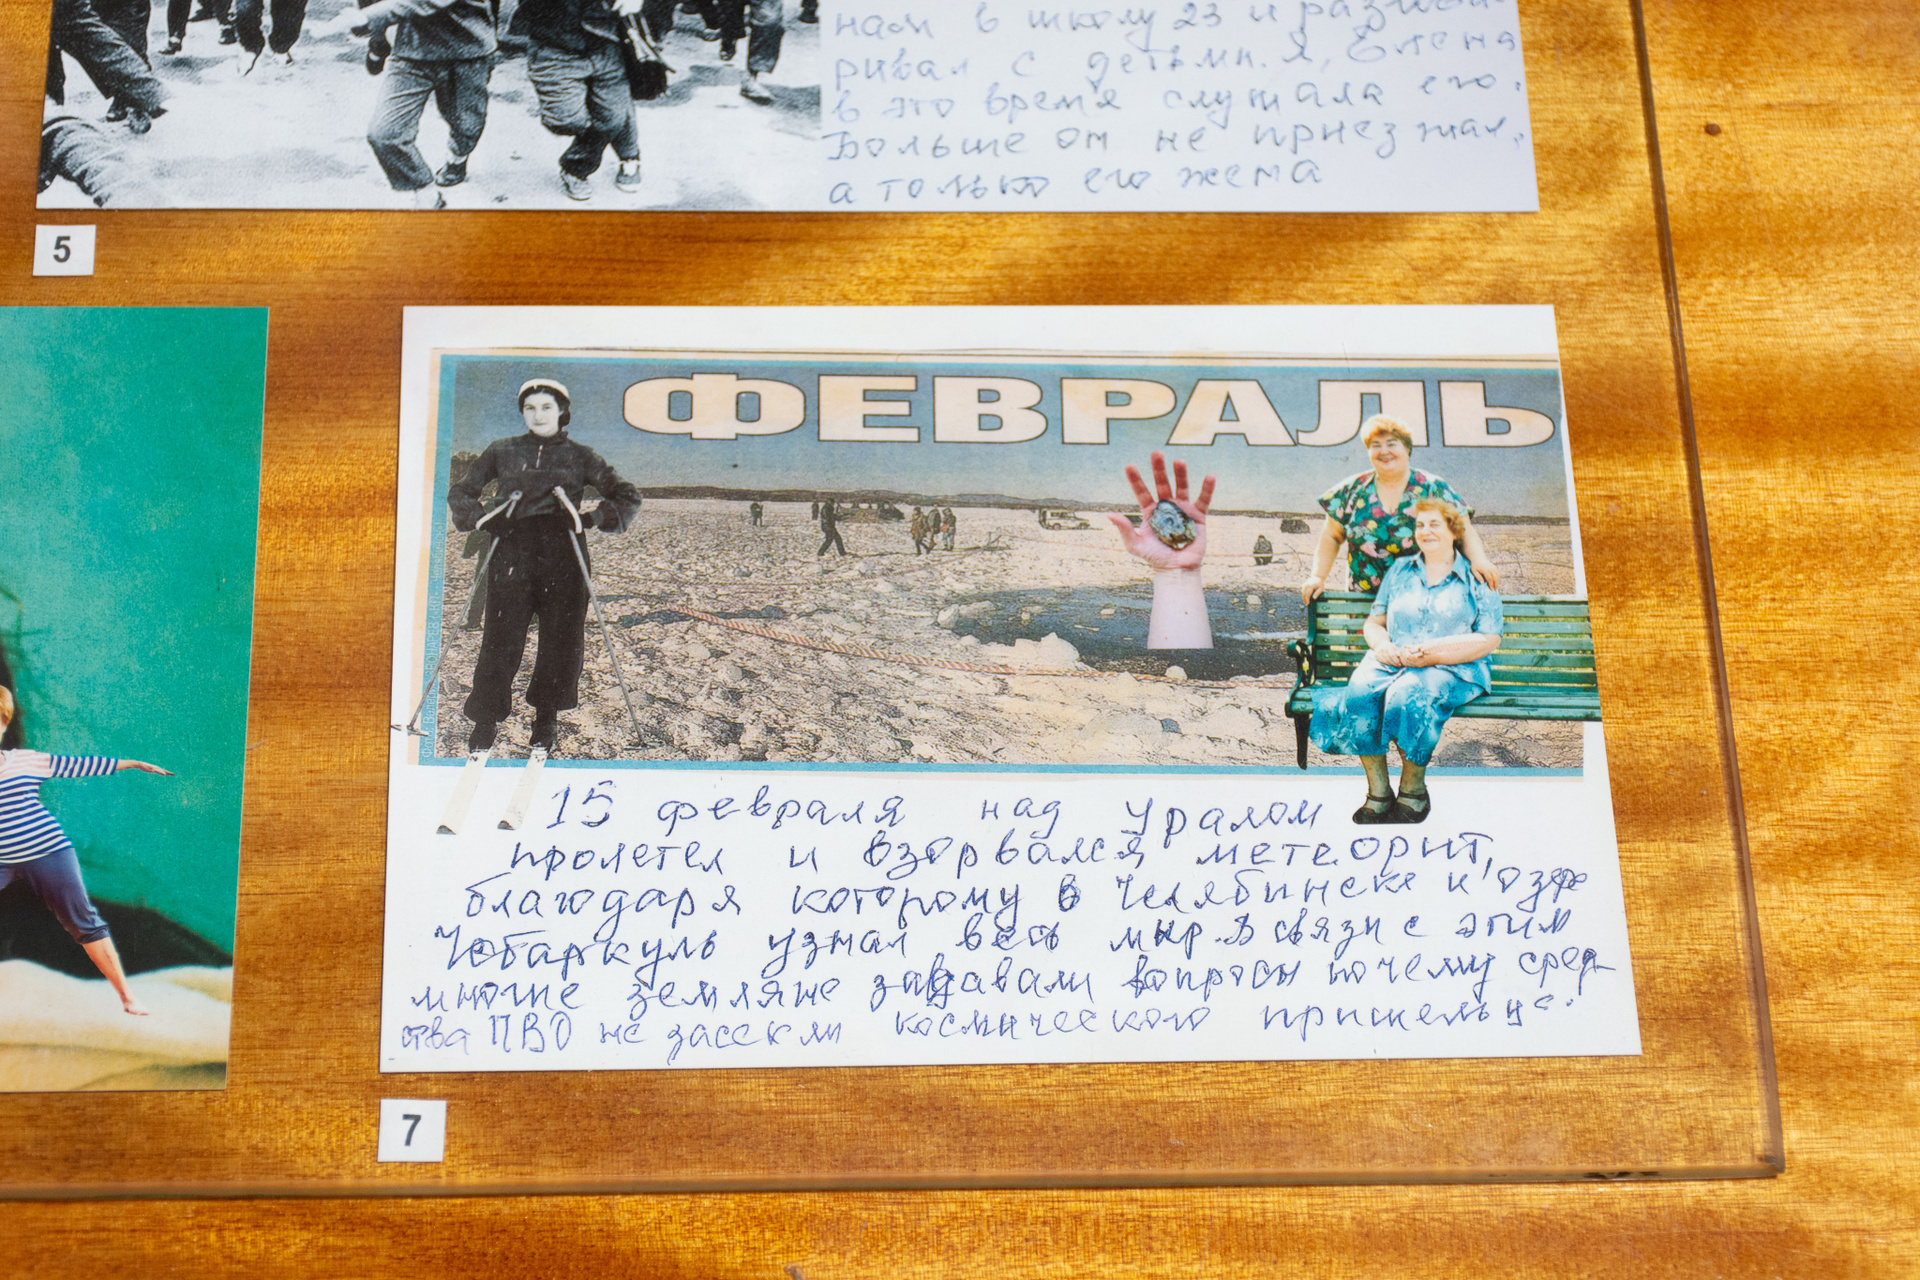 нам в школу 23 и разгова-
ривал с детьми. Я, Елена
в это время слушала его.
Больше он не приезжал,
а только его жена
5
ФЕВРАЛЬ
15 февраля над Уралом
пролетел и взорвался метеорит,
благодаря которому в Челябинске и озере
Чебаркуль узнал весь мир. В связи с этим
многие земляне задавали вопросы почему сред-
ства ПВО не засекли космического пришельца?
7